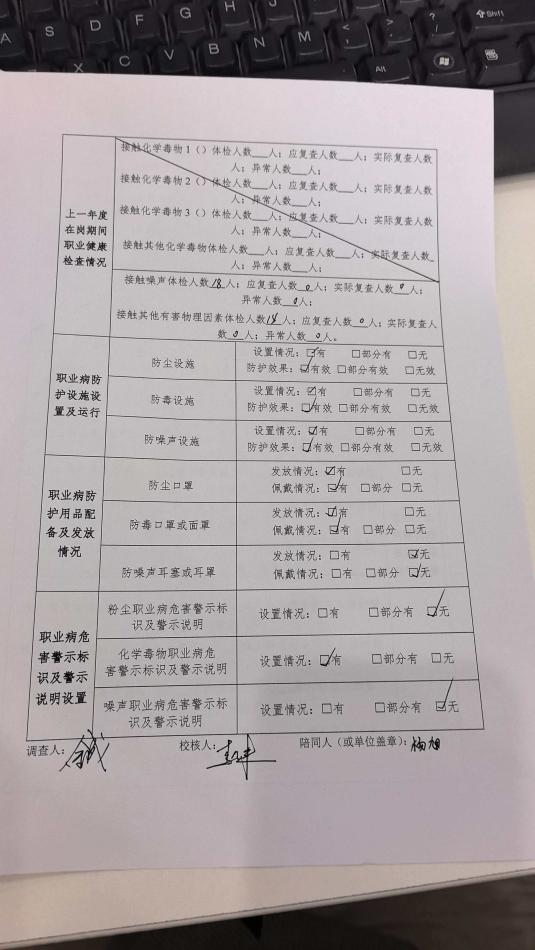 A S D F G H J K L : "
Z X C V B N M < > ? / Shift
Alt
上一年度
在岗期间
职业健康
检查情况
接触化学毒物1（）体检人数___人；应复查人数___人；实际复查人数
___人；异常人数___人；
接触化学毒物2（）体检人数___人；应复查人数___人；实际复查人数
___人；异常人数___人；
接触化学毒物3（）体检人数___人；应复查人数___人；实际复查人数
___人；异常人数___人；
接触其他化学毒物体检人数___人；应复查人数___人；实际复查人数
___人；异常人数___人；
接触噪声体检人数18人；应复查人数0人；实际复查人数0人；
异常人数0人；
接触其他有害物理因素体检人数18人；应复查人数0人；实际复查人
数0人；异常人数0人。
职业病防
护设施设
置及运行
防尘设施
设置情况：☑有 □部分有 □无
防护效果：☑有效 □部分有效 □无效
防毒设施
设置情况：☑有 □部分有 □无
防护效果：☑有效 □部分有效 □无效
防噪声设施
设置情况：☑有 □部分有 □无
防护效果：☑有效 □部分有效 □无效
职业病防
护用品配
备及发放
情况
防尘口罩
发放情况：☑有 □无
佩戴情况：☑有 □部分 □无
防毒口罩或面罩
发放情况：☑有 □无
佩戴情况：☑有 □部分 □无
防噪声耳塞或耳罩
发放情况：□有 ☑无
佩戴情况：□有 □部分 ☑无
职业病危
害警示标
识及警示
说明设置
粉尘职业病危害警示标
识及警示说明
设置情况：□有 □部分有 ☑无
化学毒物职业病危
害警示标识及警示说明
设置情况：☑有 □部分有 □无
噪声职业病危害警示标
识及警示说明
设置情况：□有 □部分有 ☑无
调查人： 校核人： 陪同人（或单位盖章）：杨旭